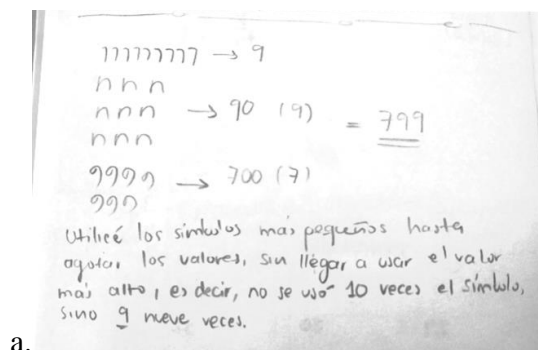 １１１１１１１１１ → 9
n n n
n n n → 90 (9)
n n n
= 799
9999 → 700 (7)
999
Utilicé los símbolos más pequeños hasta
agotar los valores, sin llegar a usar el valor
más alto, es decir, no se usó 10 veces el símbolo,
sino 9 nueve veces.
a.